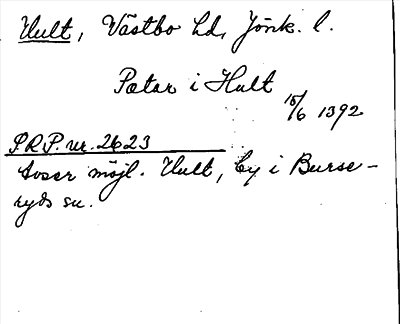 Hult, Västbo hd, Jönk. l.
Petar i Hult
15/6 1392
P.R.P. nr. 2623
Avser möjl. Hult, by i Burse-
ryds sn.